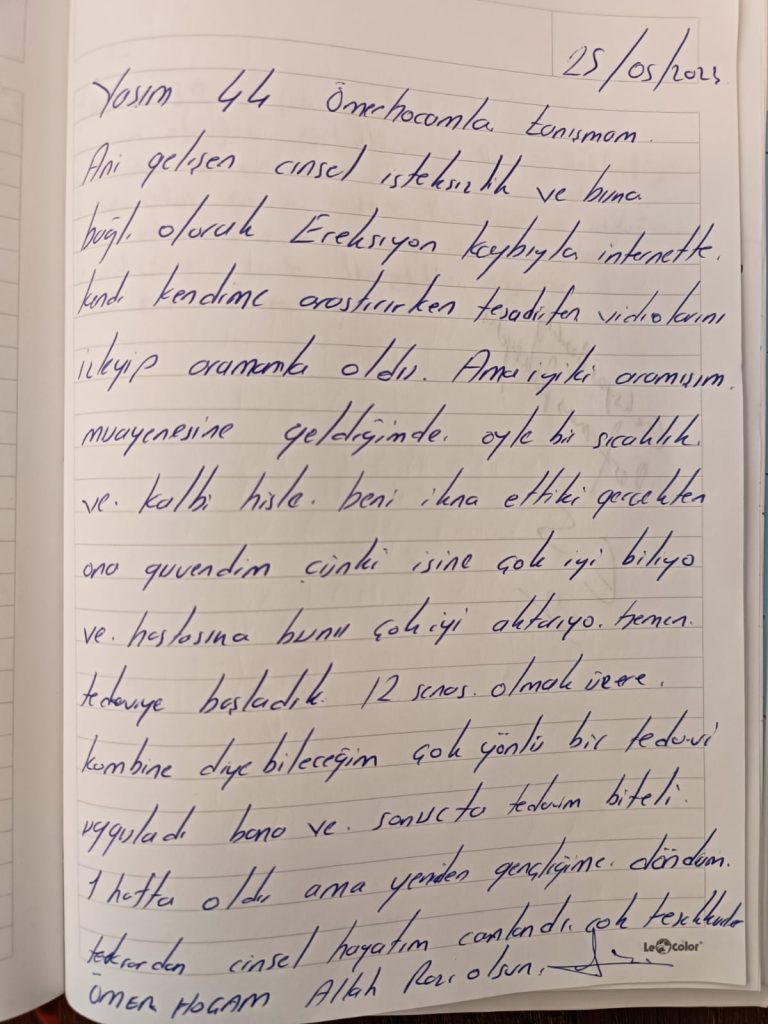 25/05/2023
Yaşım 44 Ömer hocamla tanışmam.
Ani gelişen cinsel isteksizlik ve buna
bağlı olarak Ereksiyon kaybıyla internette.
kendi kendime araştırırken tesadüfen vidiolarını
izleyip aramamla oldu. Ama iyiki aramışım.
muayenesine geldiğimde. öyle bir sıcaklık.
ve. kalbi hisle. beni ikna ettiki gerçekten
ona guvendim çünki işine çok iyi biliyo
ve. hastasına bunu çok iyi aktarıyo. hemen.
tedaviye başladık. 12 senas. olmak üzere.
kombine diye bileceğim çok yönlü bir tedavi
uyguladı bana ve. sonuçta tedavim biteli.
1 hafta oldu ama yeniden gençliğime. döndüm.
tekrardan cinsel hayatım canlandı. çok teşekkürler
ÖMER HOCAM Allah Razı olsun.
Le color